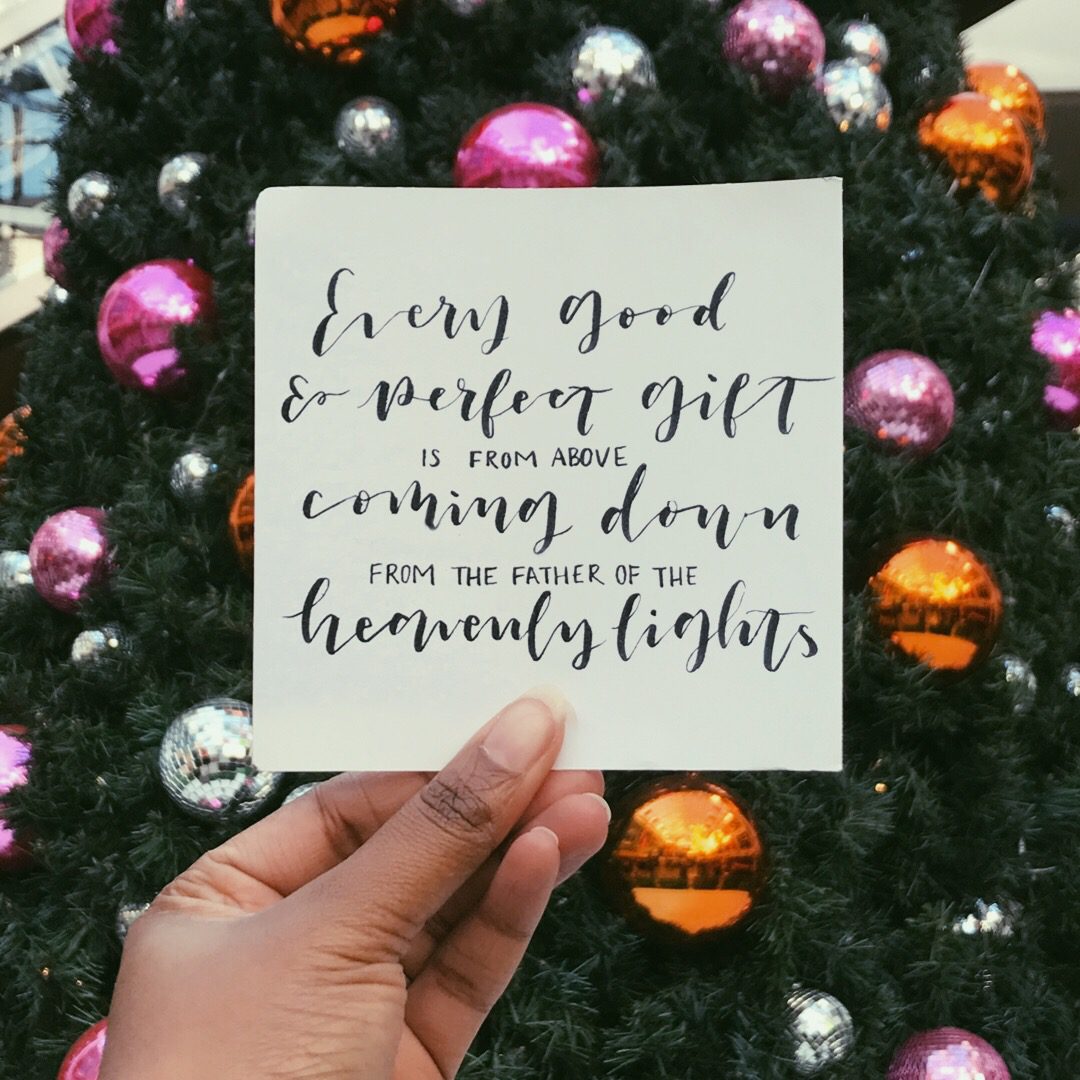 Every good
& perfect gift
IS FROM ABOVE
coming down
FROM THE FATHER OF THE
heavenly lights